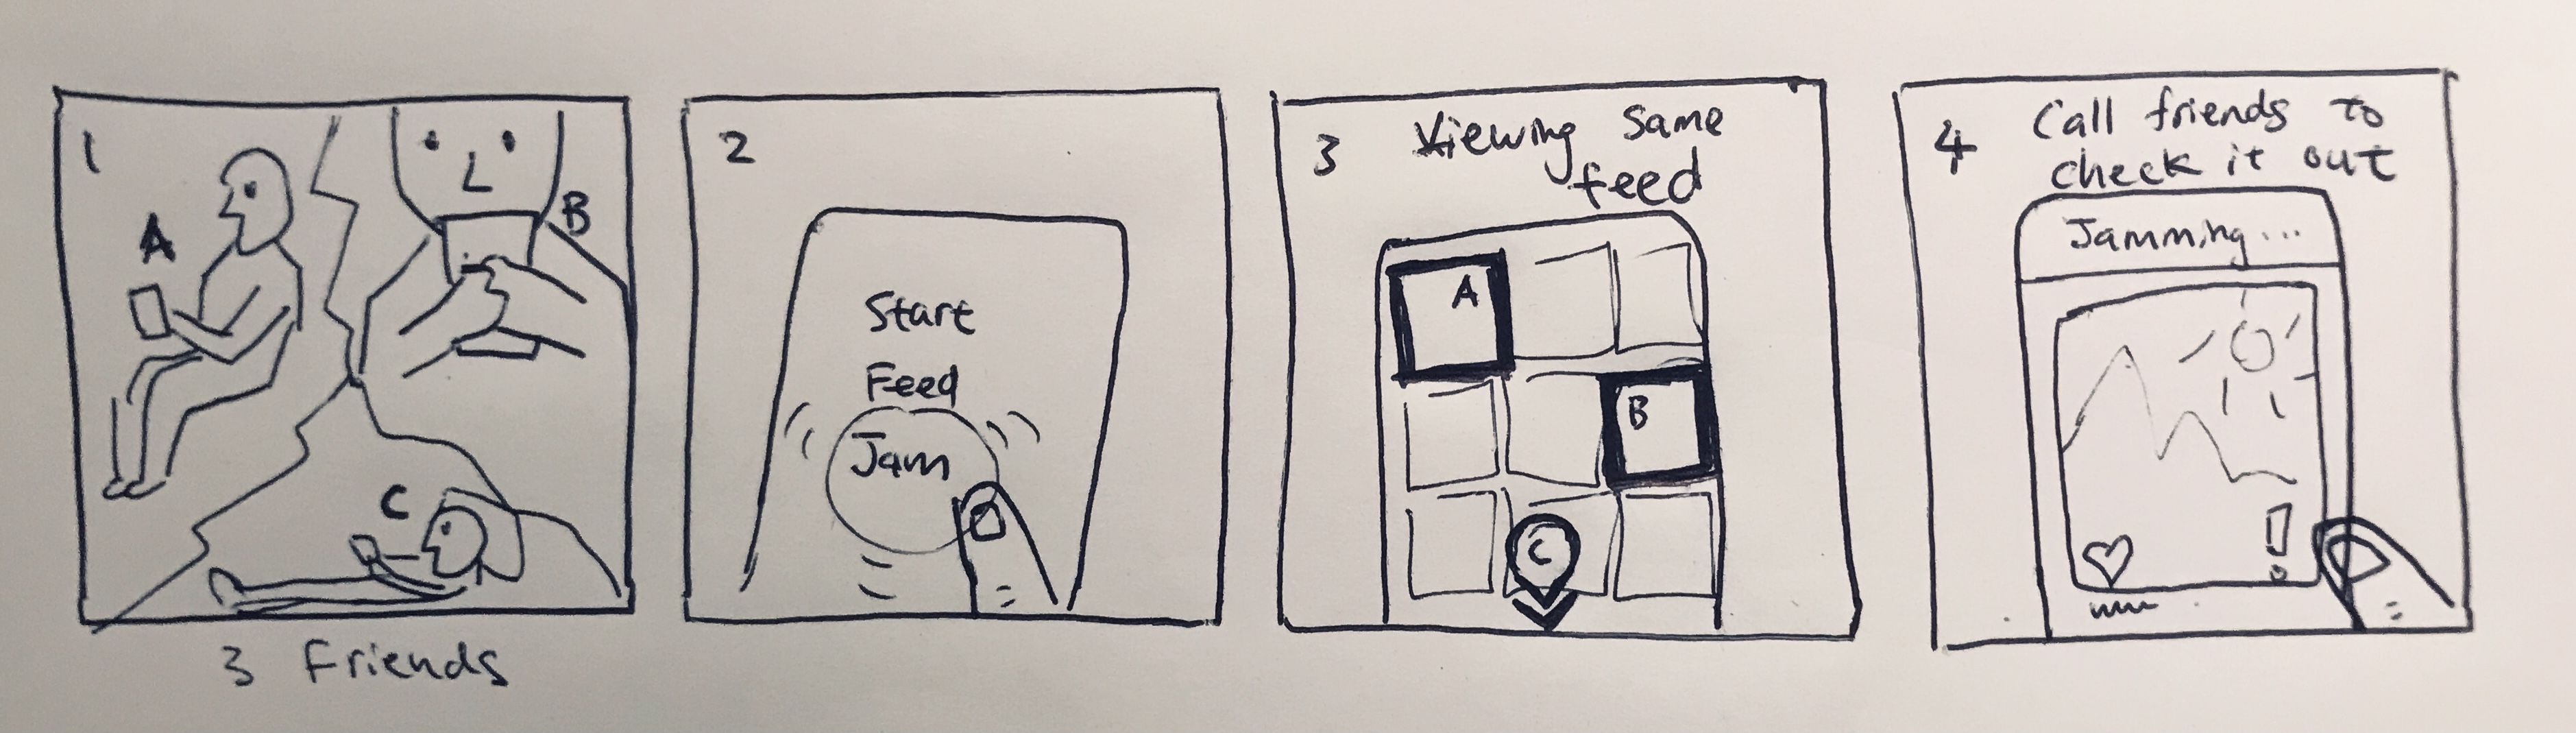 1
A
B
C
3 Friends
2
Start
Feed
Jam
3
Viewing same
feed
A
B
C
4
Call friends to
check it out
Jamming...
!